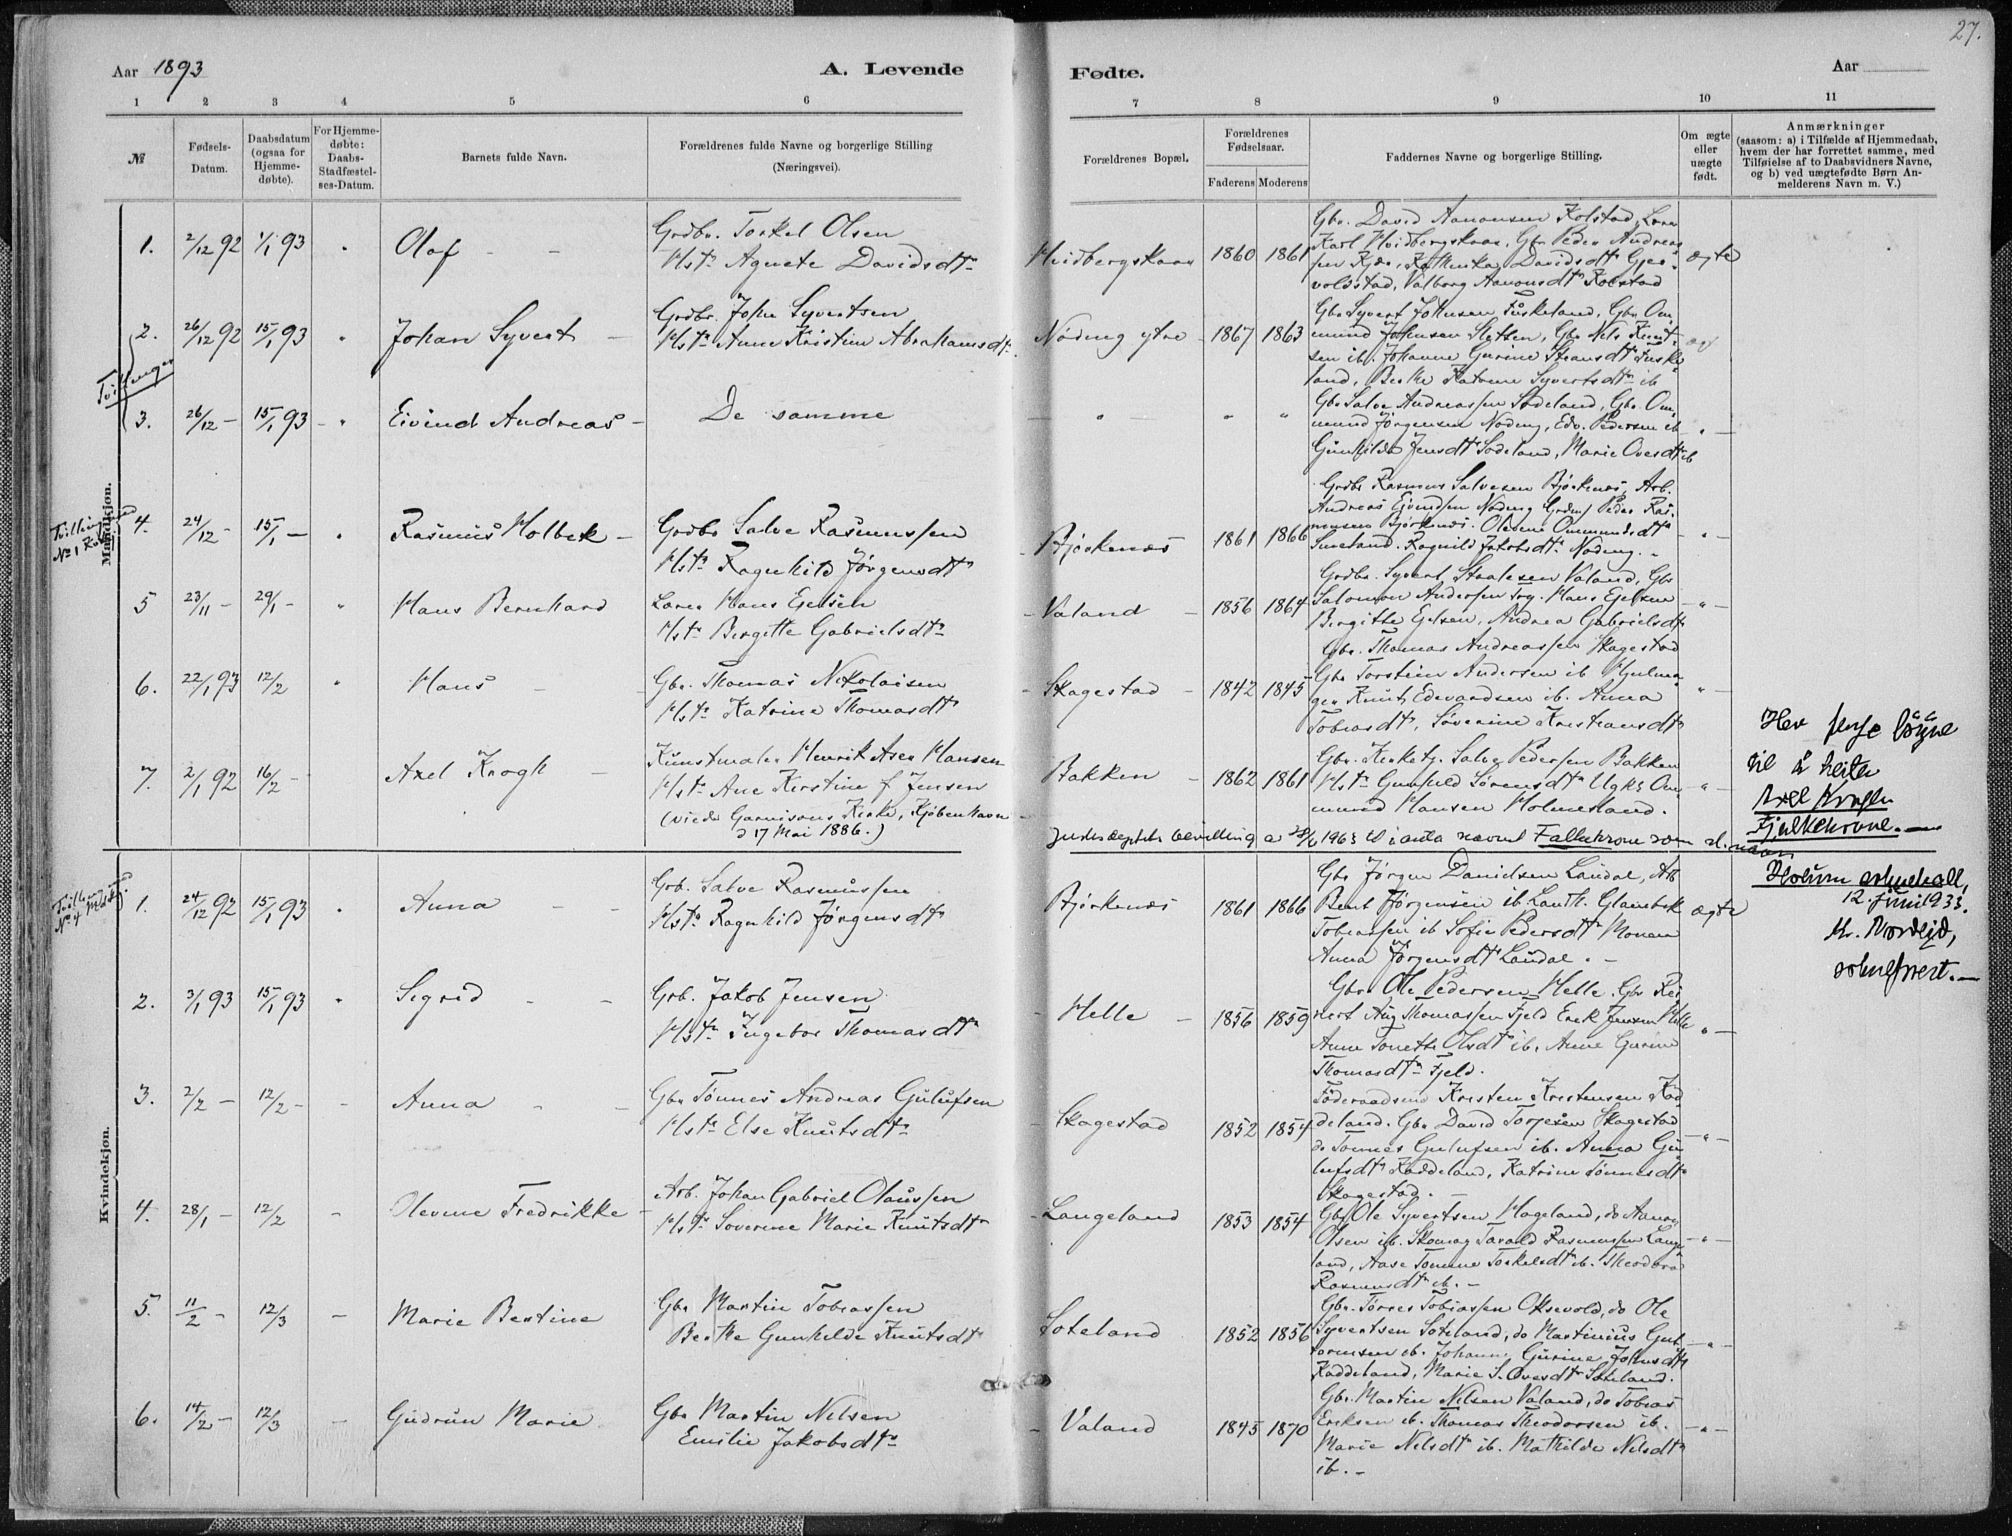 27.
Aar 1893
A. Levende
Fødte.
Aar
1 2 3 4 5 6
7 8 9 10 11
№
Fødsels-
Datum.
Daabsdatum
(ogsaa for
Hjemme-
døbte).
For Hjemme-
døbte:
Daabs-
Stadfæstel-
ses-Datum.
Barnets fulde Navn.
Forældrenes fulde Navne og borgerlige Stilling
(Næringsvei).
Forældrenes Bopæl.
Forældrenes
Fødselsaar.
Faderens Moderens
Faddernes Navne og borgerlige Stilling.
Om ægte
eller
uægte
født.
Anmærkninger
(saasom: a) i Tilfælde af Hjemmedaab,
hvem der har forrettet samme, med
Tilføielse af to Daabsvidners Navne,
og b) ved uægtefødte Børn An-
melderens Navn m. V.)
Mandkjøn.
1. 2/12 92 1/1 93 Olaf
Grdbr. Torkel Olsen
Hstr Agnete Davidsdtr
Hvidbergskaar 1860 1861
Gbr. David Aanonsen Kolstad, Lærer
Karl Hvidbergskaar, Gbr Peder Andreas
Davidsdtr Gjer-
volsstad, Valborg Aanonsdtr Kolstad
ægte
Tvillinger
2. 26/12 92 15/1 93 Johan Syvert
Grdbr. John Syvertsen
Hstr Anne Kristine Abrahamsdtr.
Nøding ytre 1867 1863
Gbr Syvert Johnsen Fuskeland, Gbr Om-
mund Johnsen Sletten, Gbr Nels Knut-
sen ib. Johanne Gurine Fuske-
land, Berthe Katrine Syvertsdtr ib
3. 26/12 - 15/1 93 - Eivind Andreas -
De samme
Gbr Salve Andreassen Sodeland, Gbr Om-
mund Jørgensen Nøding, Edv. Pedersen ib
Gunhilde Jensdtr Sodeland, Marie Ovesdtr ib
Tvilling med
No 1 Kvkj.
4. 24/12 - 15/1 - Rasmus Holbek -
Grdbr Salve Rasmussen
Hstr Ragnhild Jørgensdtr
Bjørkenæs 1861 1866
Grdbr Rasmus Salvesen Bjørkenæs, Arb.
Andreas Eivindsen Nøding Peder Ras-
mussen Bjørkenæs. Olene Ommundsdtr
Smeland. Ragnild Jakobsdtr Nøding.
5 23/11 - 29/1 - Hans Bernhard
Lærer Hans Egelsen
Hstr Bergitte Gabrielsdtr
Valand 1856 1864
Grdbr. Syvert Staalesen Valand, Gbr
Salomon Andersen Hans Egelsen
Bergitte Egelsen, Andrea Gabrielsdtr
6. 22/1 93 12/2 Hans
Gbr. Thomas Nikolaisen
Hstr Katrine Thomasdtr
Skagestad 1842 1845
Gbr. Thomas Andreassen Skagestad
Gbr Torstein Andersen ib Hjulma-
ger Knut Edvardsen ib. Anna
Tobiasdtr, Søverine Kristiansdtr
7. 2/1 92 16/2 - Axel Krogh
Kunstmaler Henrik Aser Hansen
Hstr Ane Kirstine f. Jensen
(viede Garnisons Kirke, Kjøbenhavn
d 17 Mai 1886.)
Bakken 1862 1861
Gbr. Kirketj. Salve Pedersen Bakken
Hstr Gunhild Sørensdtr Ugk. Om-
mund Hansen Holmesland.
Justisdeptets bevilling a 28/6 1963 til å anta navnet Falkekrone som sl. navn
Hev fenge løyve
til å heita
Axel Krogh
Fjulkekrone. —
Holum soknekall,
12. juni 1933.
sokneprest. —
Kvindekjøn.
Tvilling med
No 4 Mkj.
1. 24/12 92 15/1 93 Anna
Grb. Salve Rasmussen
Hstr Ragnhild Jørgensdtr
Bjørkenæs 1861 1866
Gbr Jørgen Danielsen Laudal, Arb
Bent Jørgensen ib. Glambek
Tobiassen ib Sofie Pedersdtr Monen
Anna Jørgensdtr Laudal.
ægte
2. 3/1 93 15/1 93 Sigrid
Grb. Jakob Jensen
Hstr Ingebor Thomasdtr
Helle 1856 1859
Gbr Ole Pedersen Helle. Gbr Rei-
nert Aug Thomassen Fjeld Erik Jensen Helle
Anne Tonette Olsdtr ib, Anne Gurine
Thomasdtr Fjeld.
3. 2/2 - 12/2 - Anna
Gbr Tønnes Andreas Gulufsen
Hstr Else Knutsdtr
Skagestad 1852 1854
Føderaadsmd Kristen Kristensen Kad-
deland. Gbr David Torjesen Skagestad
do Tønnes Gulufsen ib. Anna Gu-
lufsdtr Kaddeland, Katrine Tønnesdtr
Skagestad.
4. 28/1 - 12/2 Olevine Fredrikke
Arb. Johan Gabriel Olaussen
Hstr Soverine Marie Knutsdtr
Langeland 1853 1854
Gbr Ole Syvertsen Hageland, do Aanon
Olsen ib. Skomag Tarald Rasmussen Lange-
land, Aase Tomine Torkelsdtr ib. Theodora
Rasmusdtr ib. -
5. 11/2 - 12/3 Marie Bertine
Gbr Martin Tobiassen
Berthe Gunhilde Knutsdtr
Soteland 1852 1856
Gbr. Tørres Tobiassen Oksevold, do Ole
Syvertsen Soteland, do Martinius Gut-
tormsen ib. Johanne Gurine Johnsdtr
Kaddeland, Marie S. Ovesdtr Soteland.
6. 14/2 - 12/3 Gudrun Marie
Gbr Martin Nilsen
Emilie Jakobsdtr
Valand 1845 1870
Gbr. Martin Nilsen Valand, do Tobias
Eriksen ib. Thomas Theodorsen ib.
Marie Nilsdtr ib. Mathilde Nilsdtr
ib. -